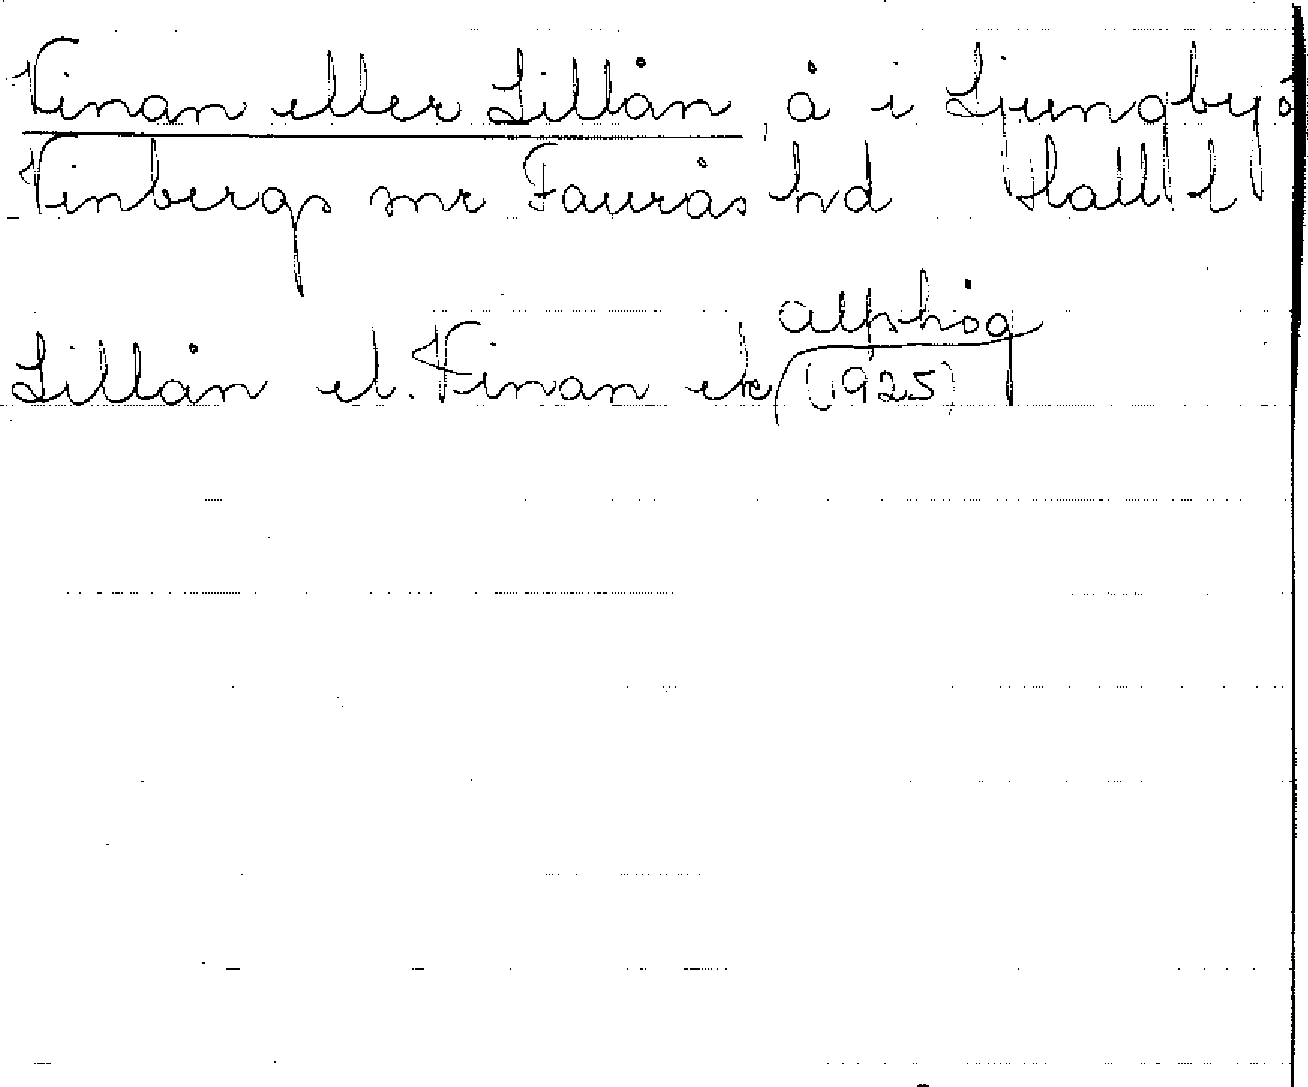 Vinan eller Lillån, å i Ljungby o
Vinbergs snr Faurås hd Hall l
Lillån el. Vinan ek (1925) Alfshög